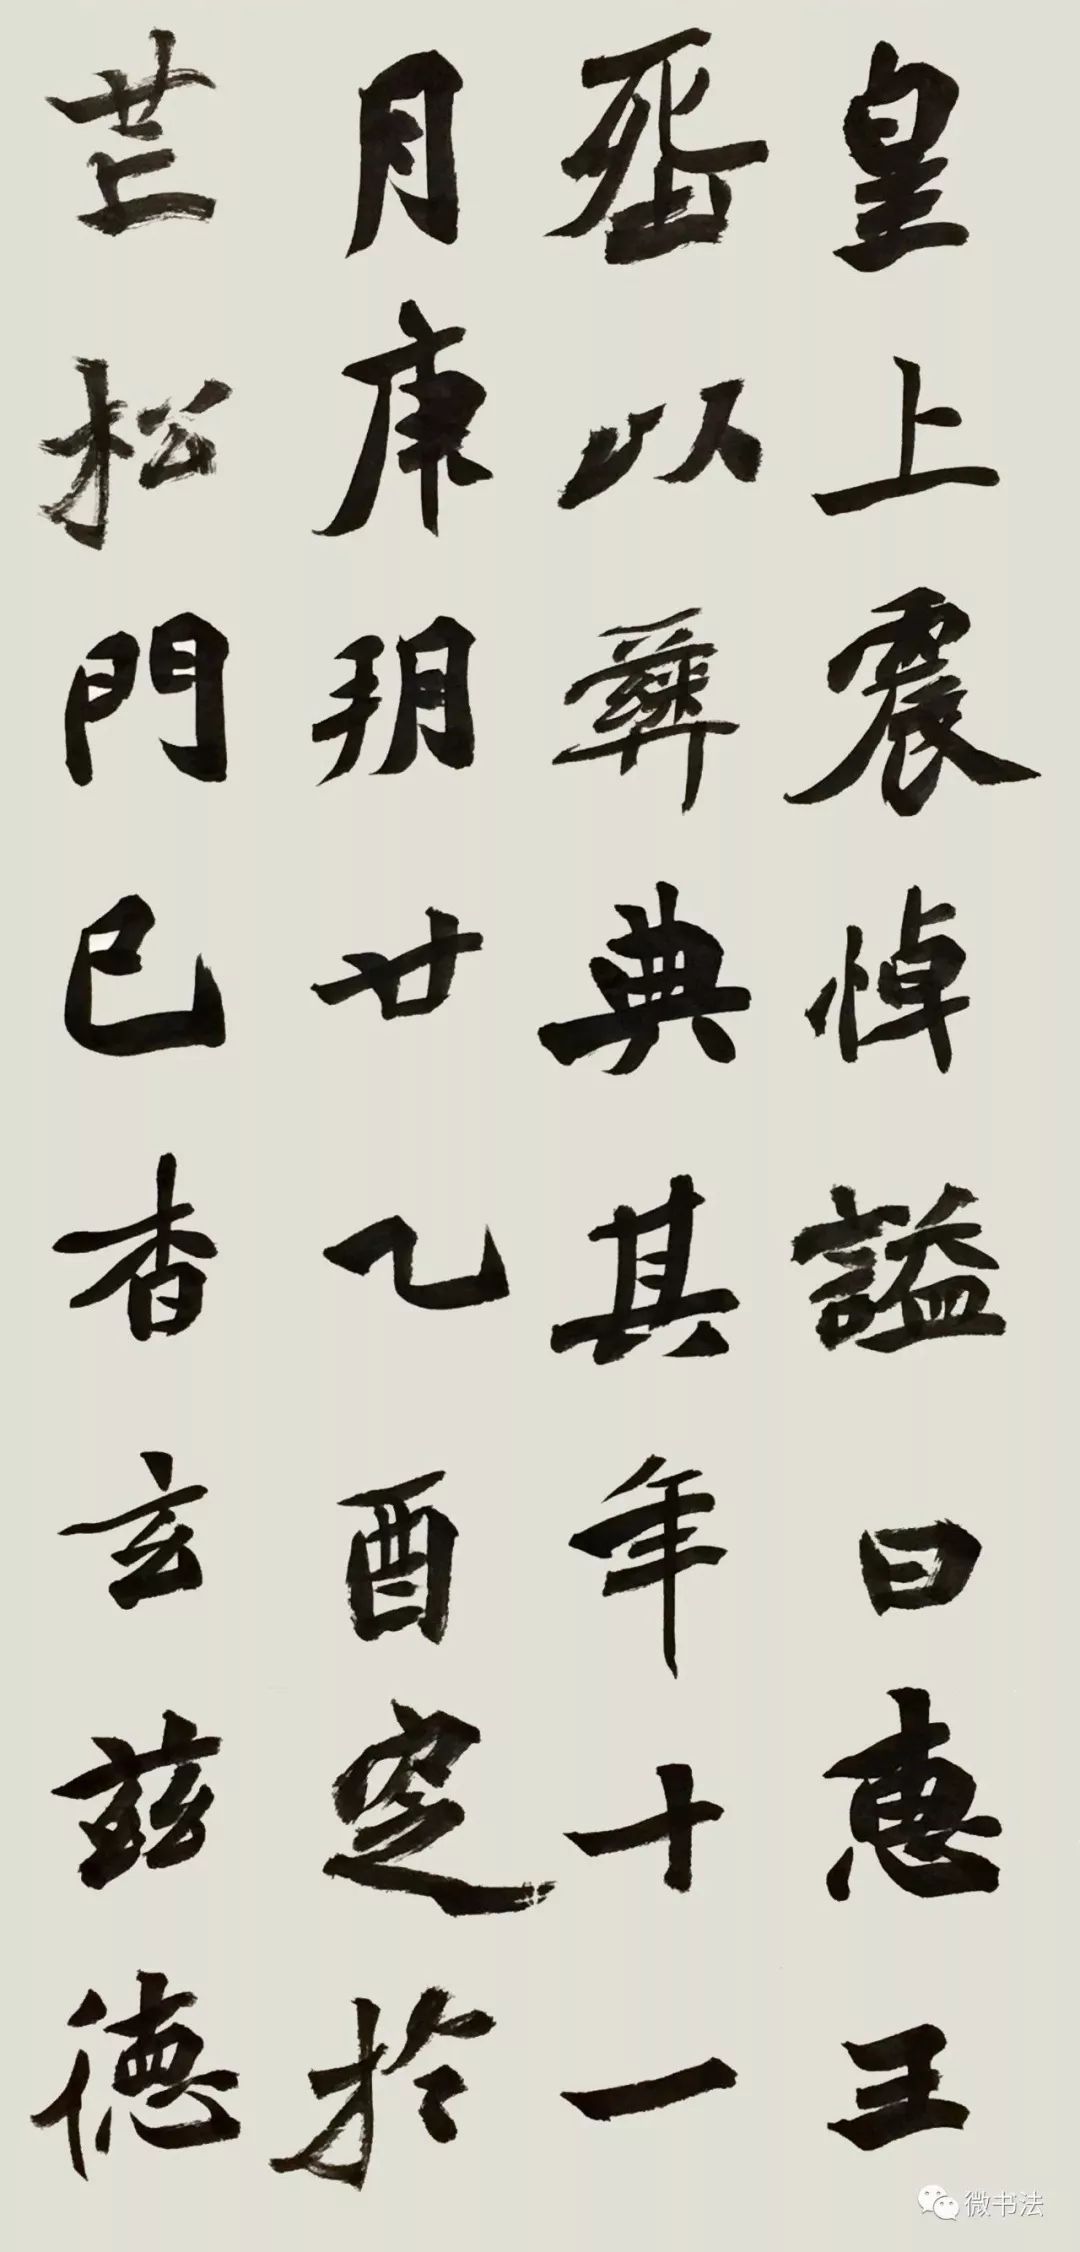 皇上震悼謚曰惠王
葬以彝典其年十一
月庚朔廿乙酉窆於
芒松門已杳玄茲德
微书法